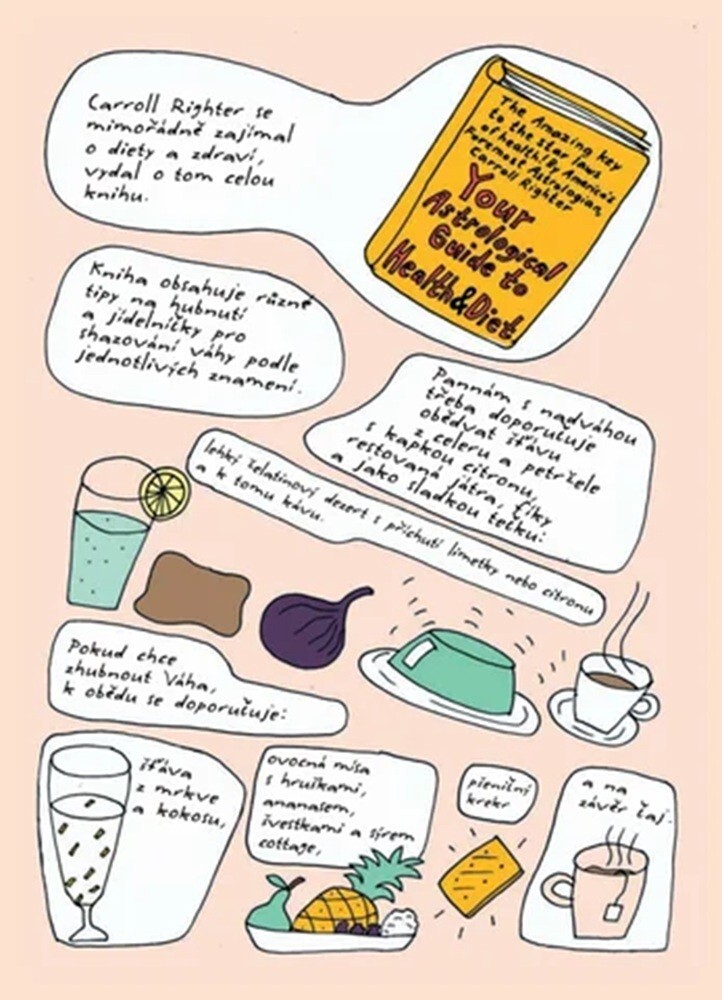 Carroll Righter se
mimořádně zajímal
o diety a zdraví,
vydal o tom celou
knihu.
The Amazing key
to the star laws
of health! By America's
Foremost Astrologian,
Carroll Righter
Your
Astrological
Guide to
Health & Diet
Kniha obsahuje různé
tipy na hubnutí
a jídelníčky pro
shazování váhy podle
jednotlivých znamení.
Pannám s nadváhou
třeba doporučuje
obědvat šťávu
z celeru a petržele
s kapkou citronu,
restovaná játra, fíky
a jako sladkou tečku:
lehký želatinový dezert s příchutí limetky nebo citronu
a k tomu kávu.
Pokud chce
zhubnout Váha,
k obědu se doporučuje:
šťáva
z mrkve
a kokosu,
ovocná mísa
s hruškami,
ananasem,
švestkami a sýrem
cottage,
pšeničný
krekr
a na
závěr čaj.